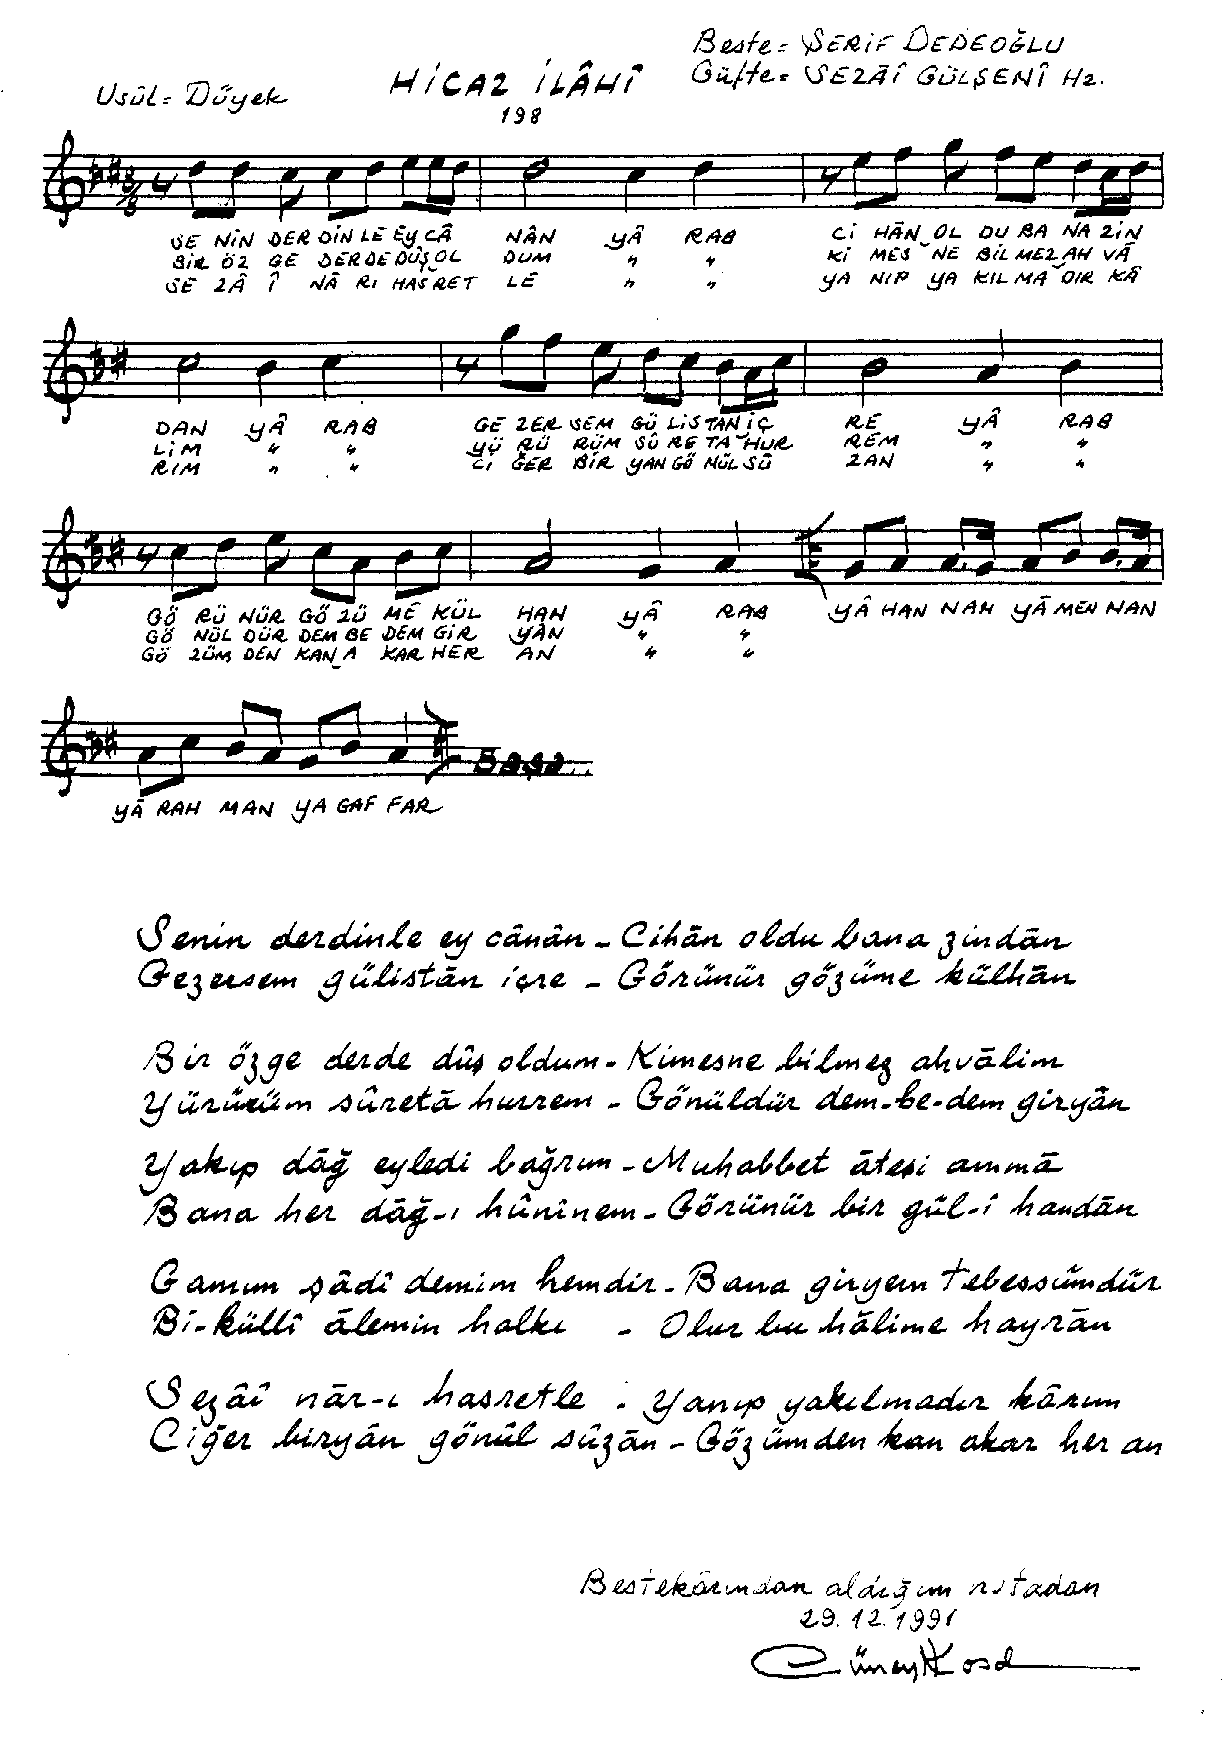 Beste = ŞERİF DEDEOĞLU
Usûl = Düyek HİCAZ İLÂHİ Güfte = SEZÂÎ GÜLŞENÎ Hz.
198
8/8
SE NİN DER DİN LE EY CÂ NÂN YÂ RAB Cİ HÂN OL DU BA NA ZİN
BİR ÖZ GE DER DE DÜŞ OL DUM " " Kİ MES NE BİL MEZ AH VÂ
SE ZÂ Î NÂ RI HASRET LE " " YA NIP YA KIL MA DIR KÂ
DAN YÂ RAB GE ZER SEM GÜ LİS TAN İÇ RE YÂ RAB
LİM " " YÜ RÜ RÜM SÛ RE TA HUR REM " "
RIM " " Cİ ĞER BİR YAN GÖ NÜL SÛ ZAN " "
GÖ RÜ NÜR GÖ ZÜ ME KÜL HAN YÂ RAB YÂ HAN NAN YÂ MEN NAN
GÖ NÜL DÜR DEM BE DEM GİR YÂN " "
GÖ ZÜM DEN KAN A KAR HER AN " "
YÂ RAH MAN YA GAF FAR
Senin derdinle ey cânân - Cihân oldu bana zindân
Gezersem gülistân içre - Görünür gözüme külhân
Bir özge derde dûş oldum - Kimesne bilmez ahvâlim
Yürürüm sûretâ hurrem - Gönüldür dem-be-dem giryân
Yakıp dâğ eyledi bağrım - Muhabbet âteşi ammâ
Bana her dâğ-ı hûnînem - Görünür bir gül-i handân
Gamım şâdî demim hemdir - Bana giryem tebessümdür
Bi-küllî âlemin halkı - Olur bu hâlime hayrân
Sezâî nâr-ı hasretle - Yanıp yakılmadır kârım
Ciğer biryân gönül sûzân - Gözümden kan akar her an
Bestekârından aldığım notadan
29.12.1991